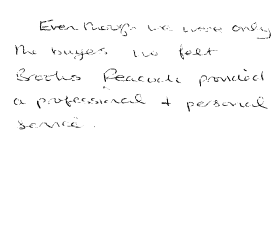 Even though we were only
the buyers we felt
Brooks Peacock provided
a professional + personal
service.